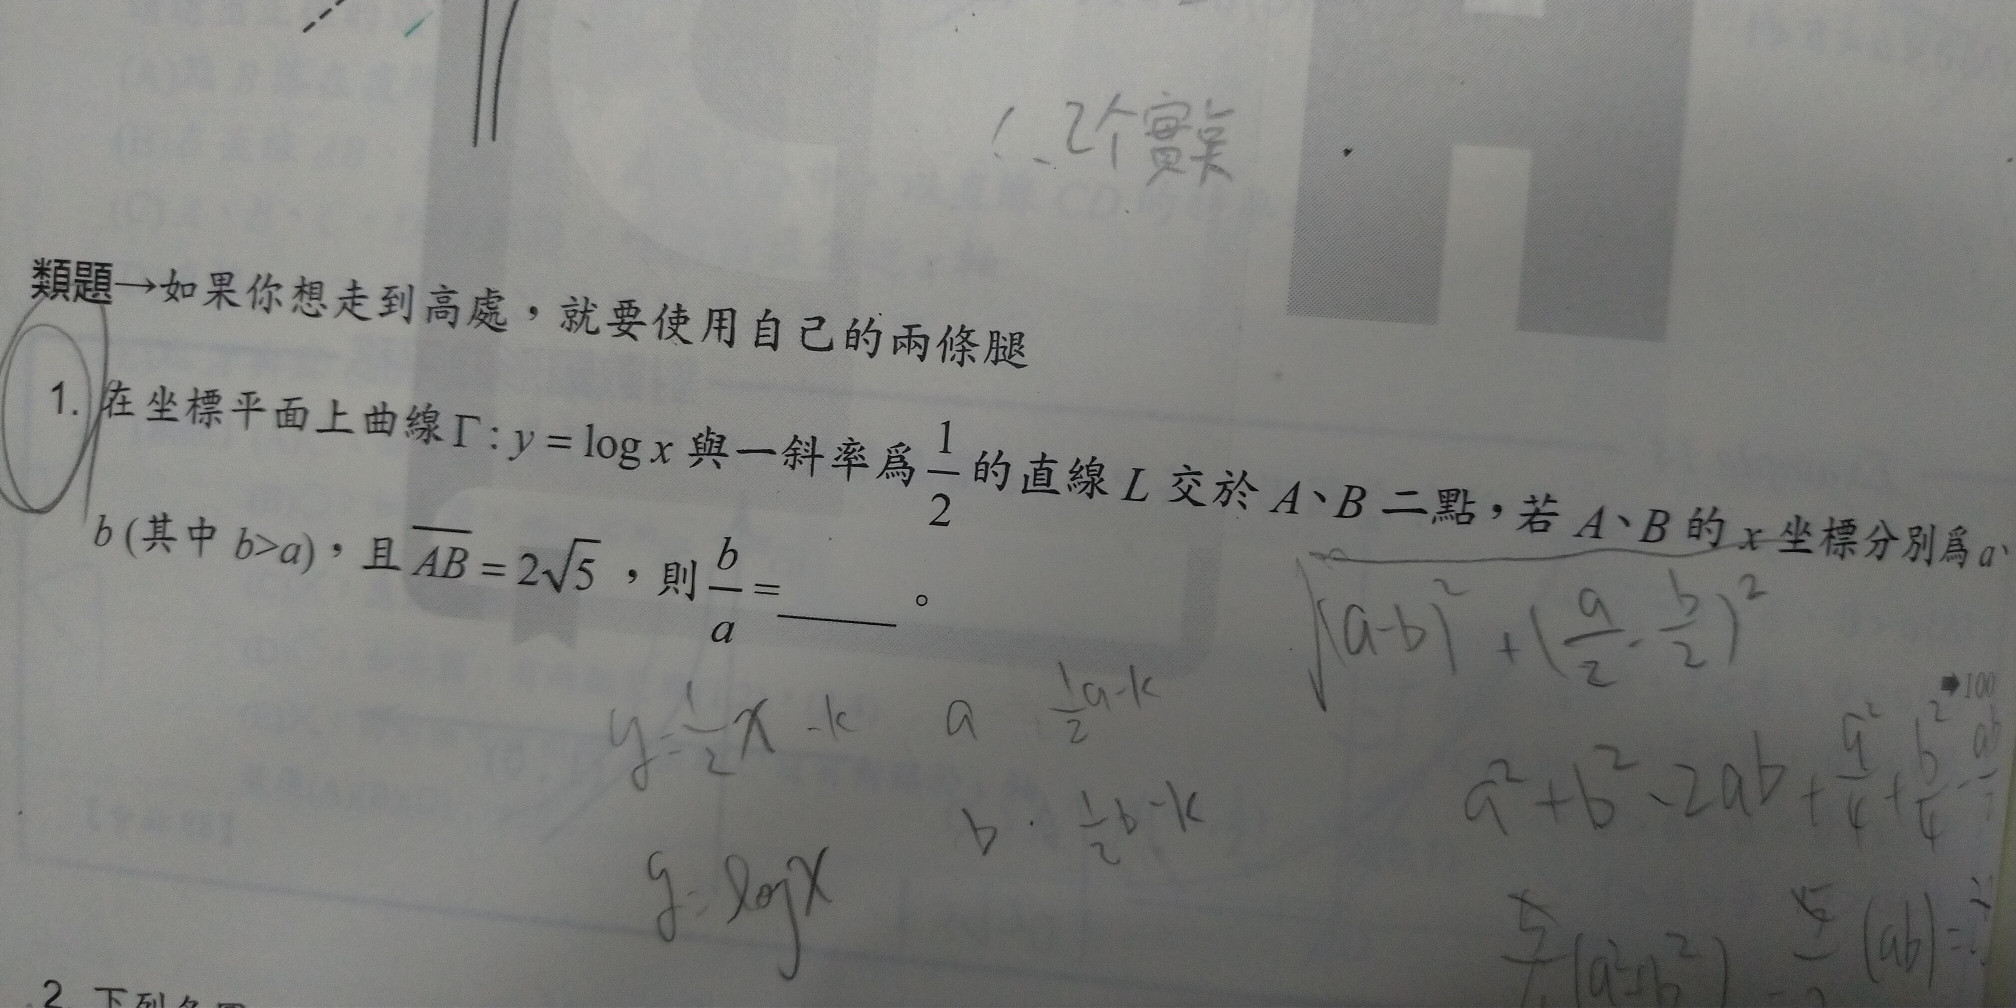 ∴2个實
類題→如果你想走到高處，就要使用自己的兩條腿
1. 在坐標平面上曲線Γ : y = log x 與一斜率爲 1/2 的直線 L 交於 A、B 二點，若 A、B 的 x 坐標分別爲 a、
b (其中 b>a)，且 AB = 2√5 ，則 b/a = ____ 。
√(a-b)² + (a/2 - b/2)²
➡100
y = 1/2 x - k a 1/2 a - k
a² + b² - 2ab + a²/4 + b²/4 -
b 1/2 b - k
y = log x
(ab) =
2. 下列各圖